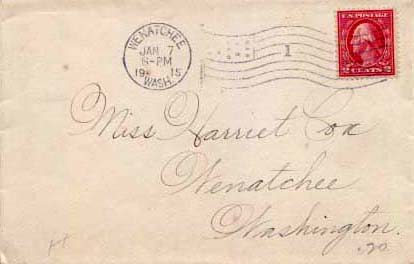 WENATCHEE
JAN 7
6-PM
19 15
WASH.
1
U.S. POSTAGE
2 CENTS 2
Miss Harriet Cox
Wenatchee
Washington.